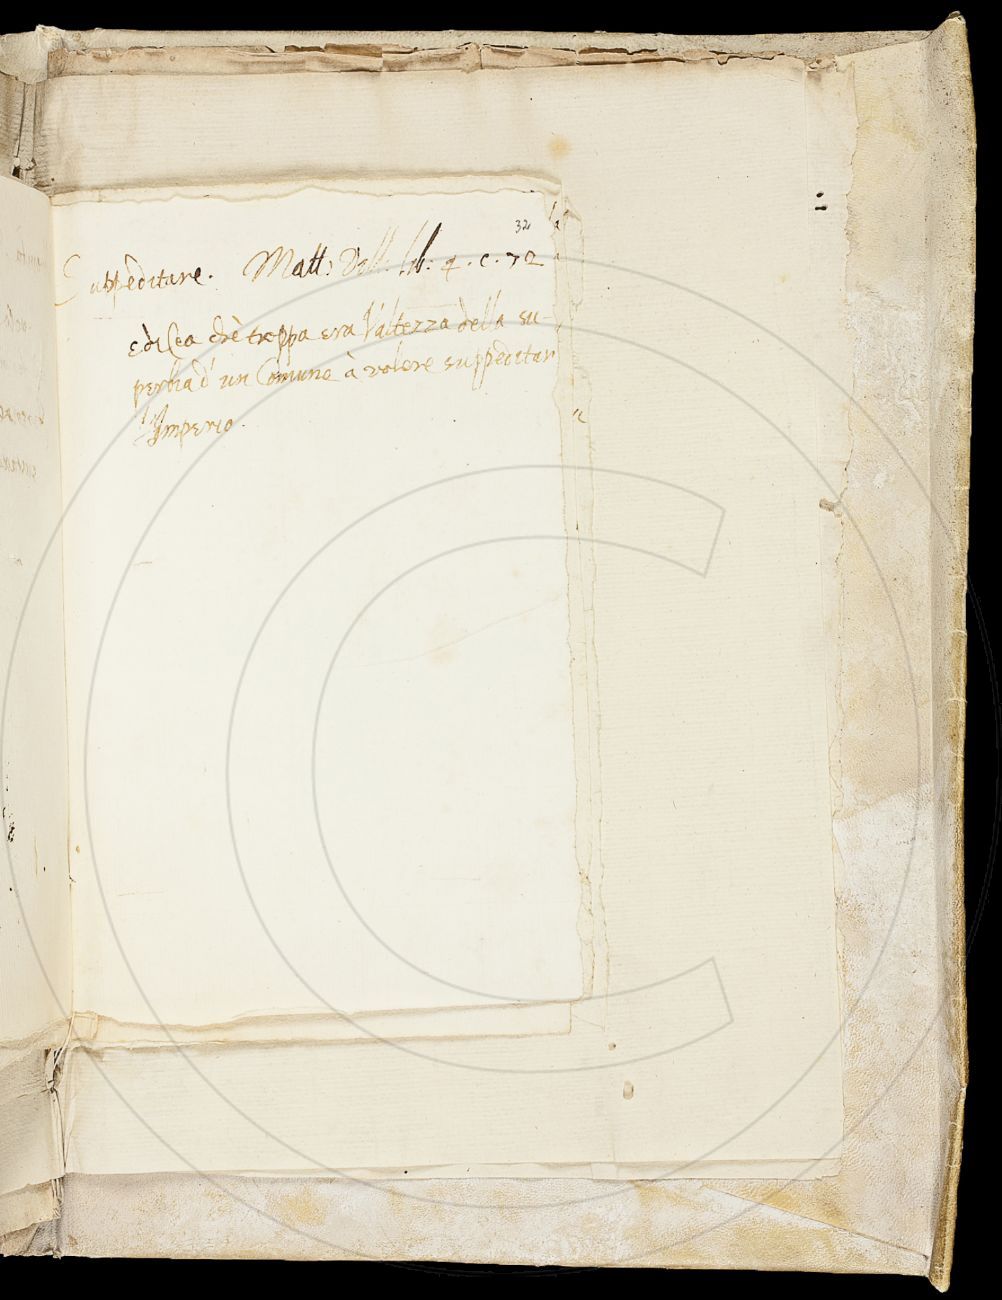 32
Suppeditare. Matt: Vill. lib: 4. c. 72
e dicea chè troppa era l'altezza della su-
perbia d' un Comune à volere suppeditar
l'Imperio.